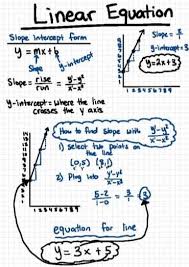 Linear Equation
Slope intercept form
y = mx + b
slope
y-intercept
Slope = rise/run =
y-intercept = where the line
crosses the y axis
Slope =
y-intercept = 3
y = 2x + 3
1 2 3 4 5 6 7 8 9
How to find slope with
1) Select two points on
the line
(0,5)
2) Plug into
5-2/1-0 = 3/1
3
1 2 3 4 5 6 7 8 9
equation for line
y = 3x + 5